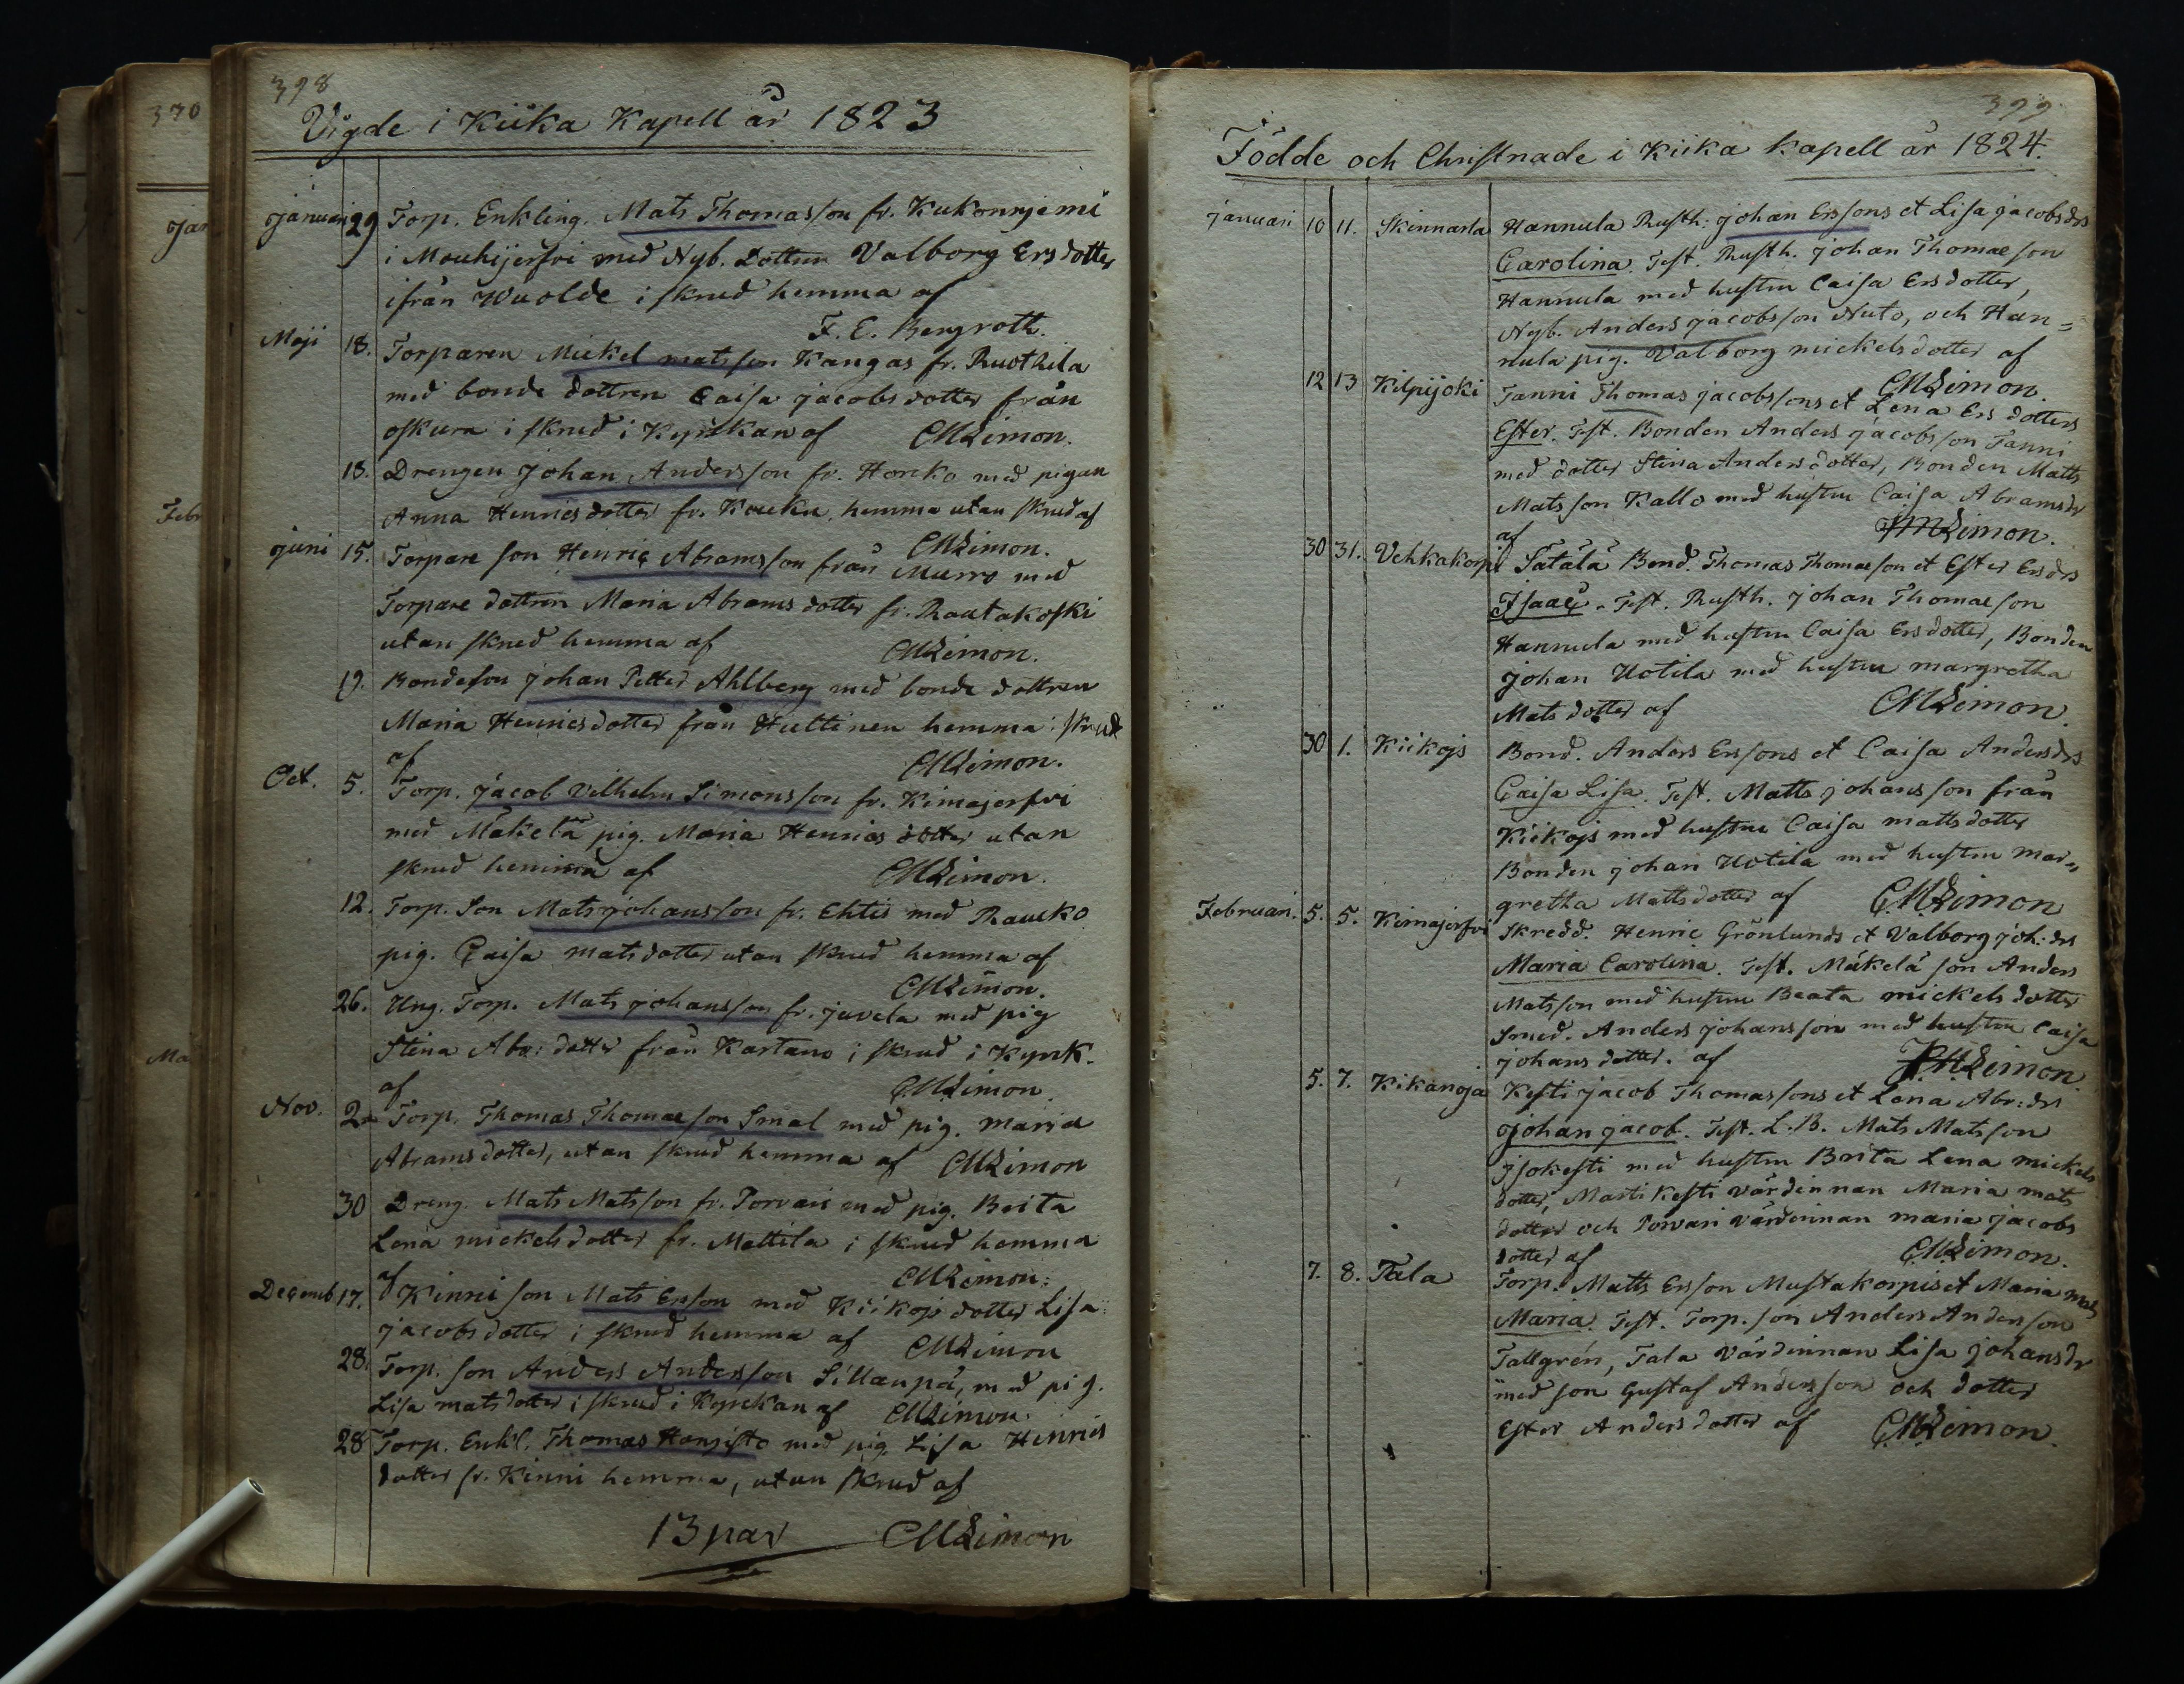 370
Jan
Febr
Ma
398
Vigde i Kiika Kapell år 1823
Januari 29 Torp. Enkling. Mats Thomasson fr. Kukonnjemi
i Mouhijerfvi med Nyb. Dottren Valborg Ersdotter
ifrån Wuolde i skrud hemma af
F. E. Bergroth.
Maji 18. Torparen Mickel matsson Kangas fr. Ruothila
med bonde dottren Caisa Jacobsdotter från
oskura i skrud i Kyrkan af CMLimon.
18. Drengen Johan Andersson fr. Honko med pigan
Anna Henricsdotter fr. Kouku, hemma utan skrud af
CMLimon.
Juni 15. Torpare son Henric Abramsson från Murro med
Torpare dottren Maria Abramsdotter fr. Rautakoski
utan skrud hemma af CMLimon.
19. Bondeson Johan Petter Ahlberg med bonde dottren
Maria Henricsdotter från Huttinen hemma i skrud
af CMLimon.
Oct. 5. Torp. Jacob Vilhelm Simonsson fr. Kimajerfvi
med Mäkelä pig. Maria Henrics dotter utan
skrud hemma af CMLimon.
12. Torp. Son Mats Johansson fr. Ehtis med Rausko
pig. Caisa matsdotter utan skrud hemma af
CMLimon.
26. Ung. Torp. Mats Johansson fr. Juvela med pig
Stina Abr: dotter från Kartano i skrud i Kyrk.
af CMLimon.
Nov. 2 Torp. Thomas Thomasson Smal med pig. maria
Abramsdotter, utan skrud hemma af CMLimon
30 Dreng. Mats Matsson fr. Porvari med pig. Brita
Lena mickelsdotter fr. Mattila i skrud hemma
af CMLimon.
Decemb 17. Kinni son Mats Ersson med Kiikojs dotter Lisa
jacobsdotter i skrud hemma af CMLimon
28. Torp. son Anders Andersson Sillanpä, med pig.
Lisa matsdotter i skrud i Kyrckan af CMLimon.
28 Torp. Enkl. Thomas Hongisto med pig Lisa Henrics
dotter fr. Kinni hemma, utan skrud af
13 par CMLimon
399
Födde och Christnade i Kiika Kapell år 1824.
Januari 10 11. Skinnarla Hannula Rusth: Johan Erssons et Lisa Jacobsdrs
Carolina. Test. Rusth. Johan Thomasson
Hannula med hustru Caisa Ersdotter,
Nyb. Anders Jacobsson Nuto, och Han=
nula pig. Valborg mickelsdotter af
CMLimon.
12 13 Kilpijoki Tanni Thomas jacobssons et Lena Ers dotters
Ester. Test. Bonden Anders Jacobsson Tanni
med dotter Stina Andersdotter, Bonden Matts
Matsson Kallo med hustru Caisa Abramsdr
af CMLimon.
30 31. Vehkakorpi Tatala Bond. Thomas Thomasson et Ester Ersdrs
Isaac. Test. Rusth. Johan Thomasson
Hannula med hustru Caisa Ersdotter, Bonden
Johan Uotila med hustru margretha
Matsdotter af CMLimon.
30 1. Kiikojs Bond. Anders Erssons et Caisa Andersdrs
Caisa Lisa. Test. Matts Johansson från
Kiikojs med hustru Caisa mattsdotter
Bonden Johan Uotila med hustru mar=
gretha Mattsdotter af CMLimon
Februari. 5. 5. Kimajerfvi Skredd. Henric Grönlunds et Valborg Joh: drs
Maria Carolina. Test. Mäkelä son Anders
Matsson med hustru Beata mickelsdotter
Smed. Anders Johansson med hustru Caisa
Johansdotter. af CMLimon.
5. 7. Kikanoja Kesti Jacob Thomassons et Lena Abr: drs
Johan Jacob. Test. L. B. Mats Matsson
Isokesti med hustru Brita Lena mickels
dotter, Marti Kesti värdinnan Maria mats
dotter och Porvari värdinnan maria Jacobs
dotter af CMLimon.
7. 8. Tala Torp. Matts Ersson Mustakorpis et Maria mats
Maria. Test. Torp. son Anders Andersson
Tallgrén, Tala värdinnan Lisa Johansdr
med son Gustaf Andersson och dotter
Ester Andersdotter af CMLimon.